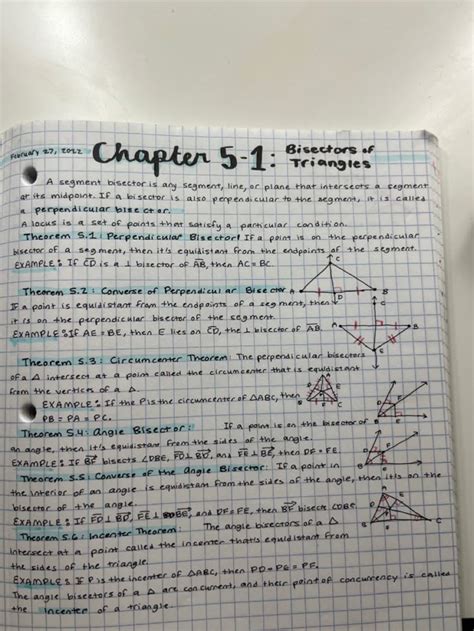 February 27, 2022 Chapter 5-1: Bisectors of Triangles
A segment bisector is any segment, line, or plane that intersects a segment
at its midpoint. If a bisector is also perpendicular to the segment, it is called
a perpendicular bisector.
A locus is a set of points that satisfy a particular condition.
Theorem 5.1: Perpendicular Bisector: If a point is on the perpendicular
bisector of a segment, then it's equidistant from the endpoints of the segment.
EXAMPLE: If CD is a ⊥ bisector of AB, then AC = BC.
C
Theorem 5.2: Converse of Perpendicular Bisector
A D B
If a point is equidistant from the endpoints of a segment, then
it is on the perpendicular bisector of the segment.
EXAMPLE: If AE = BE, then E lies on CD, the ⊥ bisector of AB.
C
A B
E
Theorem 5.3: Circumcenter Theorem: The perpendicular bisectors
of a △ intersect at a point called the circumcenter that is equidistant
from the vertices of a △.
EXAMPLE: If the P is the circumcenter of △ABC, then
PB = PA = PC.
Theorem 5.4: Angle Bisector: If a point is on the bisector of
an angle, then it's equidistant from the sides of the angle.
EXAMPLE: If BF bisects ∠DBE, FD⊥BD, and FE⊥BE, then DF = FE.
Theorem 5.5: Converse of the Angle Bisector: If a point in
the interior of an angle is equidistant from the sides of the angle, then it's on the
bisector of the angle.
EXAMPLE: If FD⊥BD, FE⊥BE, and DF = FE, then BF bisect ∠DBE.
Theorem 5.6: Incenter Theorem: The angle bisectors of a △
intersect at a point called the incenter that's equidistant from
the sides of the triangle.
EXAMPLE: If P is the incenter of △ABC, then PD = PE = PF.
The angle bisectors of a △ are concurrent, and their point of concurrency is called
the incenter of a triangle.